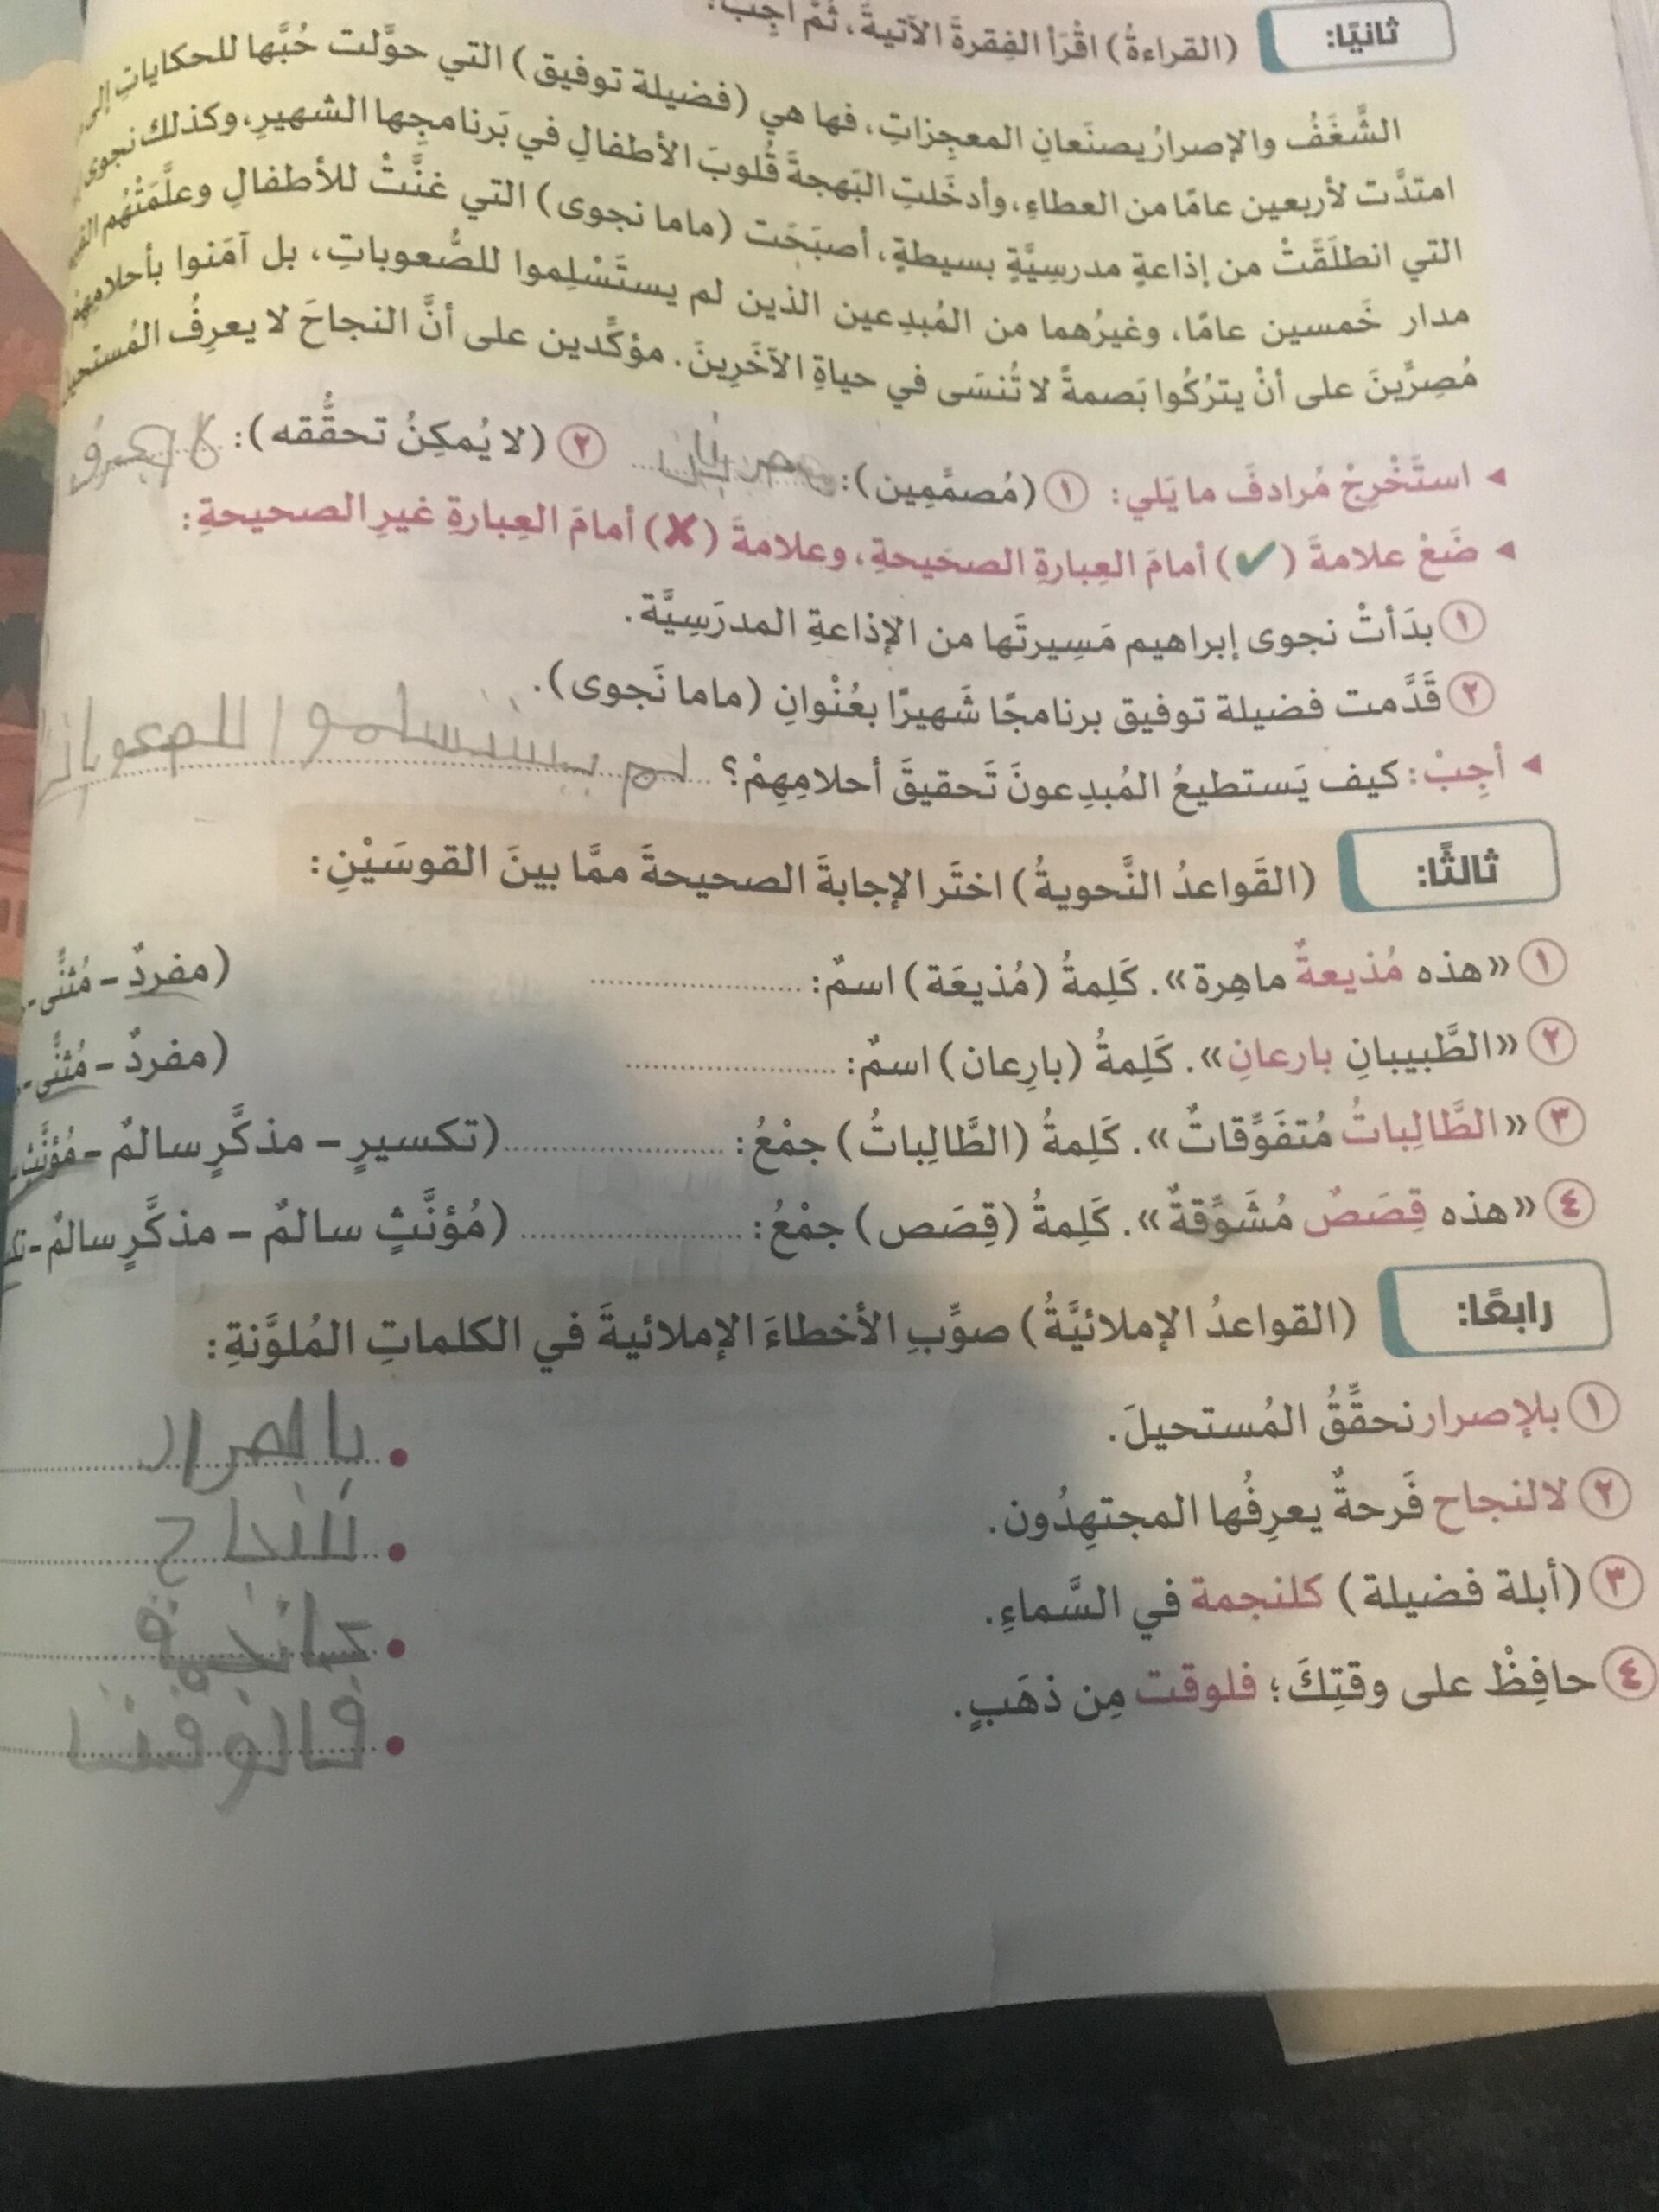 ثانيًا:
(القراءةُ) اقْرَأ الفِقرةَ الآتيةَ، ثُمَّ أجِبْ:
الشَّغَفُ والإصرارُ يصنَعانِ المعجِزاتِ، فها هي (فضيلة توفيق) التي حوَّلت حُبَّها للحكاياتِ إلى
امتدَّت لأربعين عامًا من العطاءِ، وأدخَلتِ البَهجةَ قُلوبَ الأطفالِ في بَرنامجِها الشهيرِ، وكذلك نجوى
التي انطلَقَتْ من إذاعةٍ مدرسِيَّةٍ بسيطةٍ، أصبَحَت (ماما نجوى) التي غنَّتْ للأطفالِ وعلَّمَتْهُم
مدار خَمسين عامًا، وغيرُهما من المُبدِعين الذين لم يستَسْلِموا للصُّعوباتِ، بل آمَنوا بأحلامِهِم
مُصِرِّينَ على أنْ يترُكُوا بَصمةً لا تُنسَى في حياةِ الآخَرِينَ. مؤكِّدين على أنَّ النجاحَ لا يعرِفُ المُستحيل
◂ استَخْرِجْ مُرادفَ ما يَلي: ١ (مُصمِّمِين): مصرين ٢ (لا يُمكِنُ تحقُّقه): لا يعرف
◂ ضَعْ علامةَ (✔) أمامَ العِبارةِ الصحَيحةِ، وعلامةَ (✘) أمامَ العِبارةِ غيرِ الصحيحةِ:
١ بدَأتْ نجوى إبراهيم مَسِيرتَها من الإذاعةِ المدرَسِيَّة.
٢ قَدَّمت فضيلة توفيق برنامجًا شَهيرًا بعُنْوانِ (ماما نَجوى).
◂ أجِبْ: كيف يَستطيعُ المُبدِعونَ تَحقيقَ أحلامِهِمْ؟ لم يستسلموا للصعوبات
ثالثًا:
(القَواعدُ النَّحويةُ) اختَر الإجابةَ الصحيحةَ ممَّا بينَ القوسَيْنِ:
١ «هذه مُذيعةٌ ماهِرة». كَلِمةُ (مُذيعَة) اسمٌ: (مفردٌ – مُثنًّى –
٢ «الطَّبيبانِ بارعانِ». كَلِمةُ (بارِعان) اسمٌ: (مفردٌ – مُثنًّى –
٣ «الطَّالِباتُ مُتفَوِّقاتٌ». كَلِمةُ (الطَّالِباتُ) جمْعُ: (تكسيرٍ – مذكَّرٍ سالمٌ – مُؤنَّثٍ
٤ «هذه قِصَصٌ مُشَوِّقةٌ». كَلِمةُ (قِصَص) جمْعُ: (مُؤنَّثٍ سالمٌ – مذكَّرٍ سالمٌ –
رابعًا:
(القواعدُ الإملائيَّةُ) صوِّبِ الأخطاءَ الإملائيةَ في الكلماتِ المُلوَّنةِ:
١ بلإصرار نحقِّقُ المُستحيلَ. • بالصرار
٢ لالنجاح فَرحةٌ يعرِفُها المجتهِدُون. • للنجاح
٣ (أبلة فضيلة) كلنجمة في السَّماءِ.
٤ حافِظْ على وقتِكَ؛ فلوقت مِن ذهَبٍ. • فالوقت